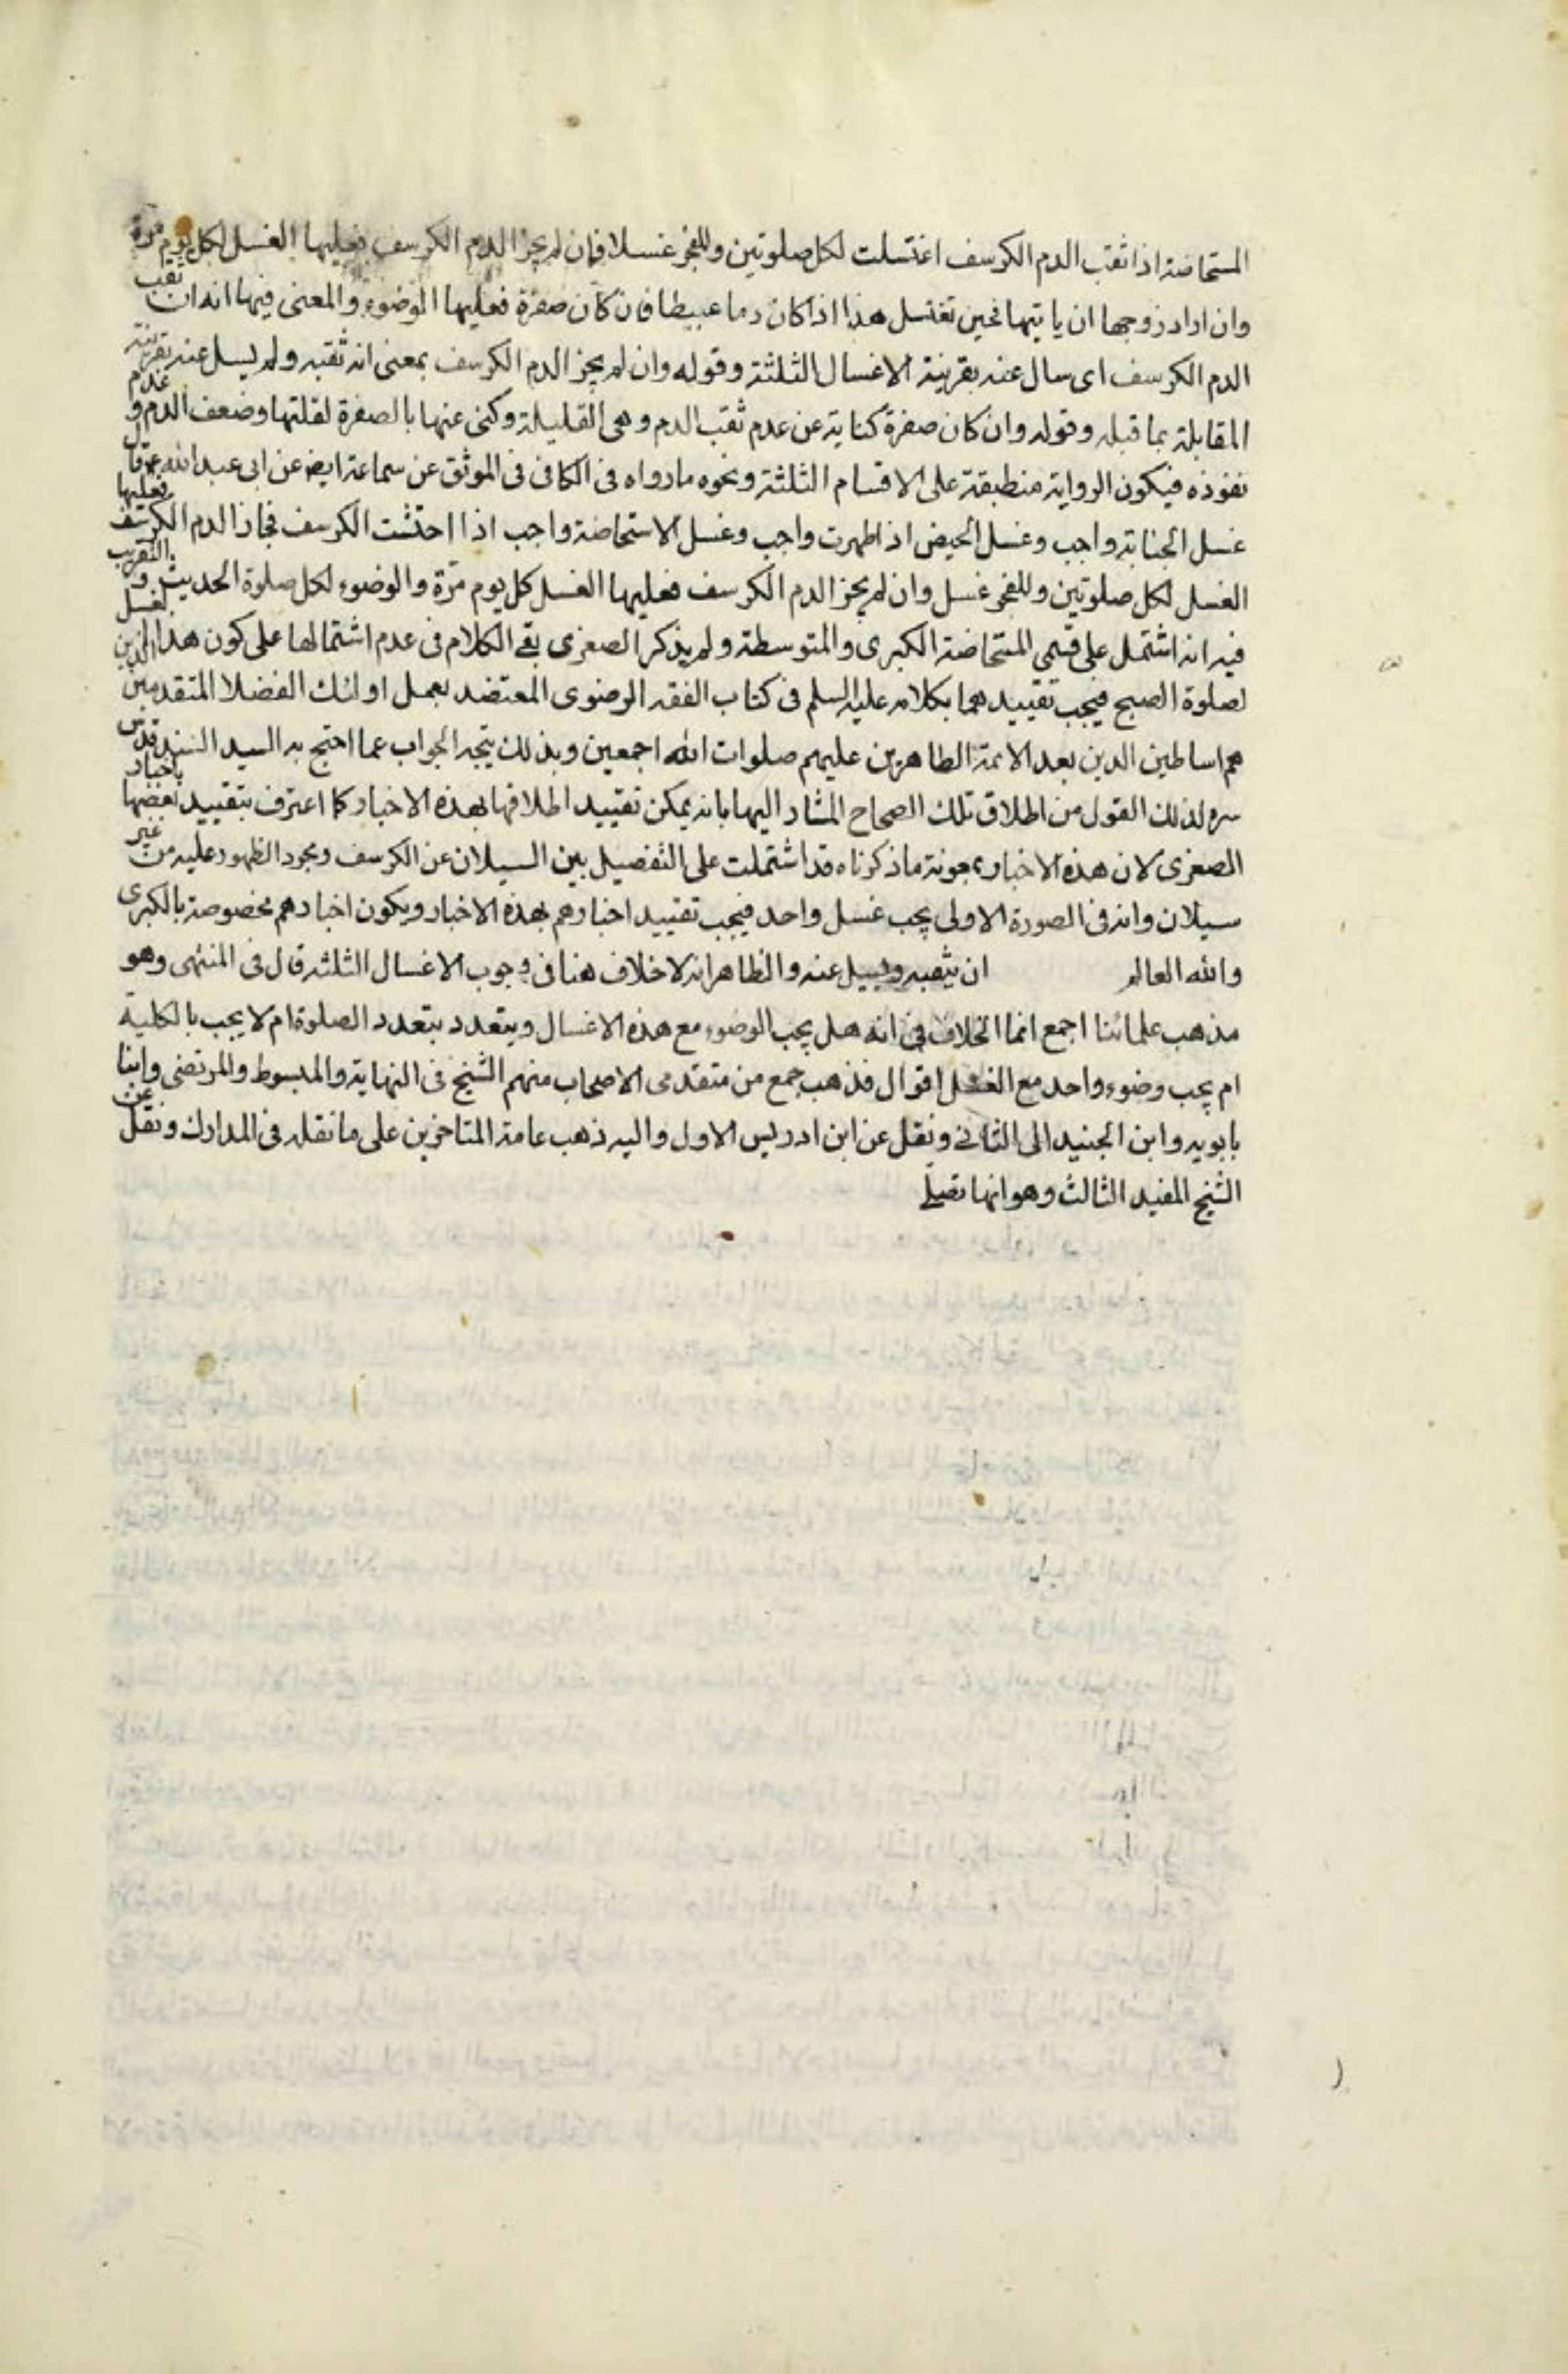 المستحاضة اذا ثقب الدم الكرسف اغتسلت لكل صلوتين وللفجر غسلا فان لم يجز الدم الكرسف فعليها الغسل لكل يوم مرة
وان اراد زوجها ان ياتيها فحين تغتسل هذا اذا كان دما عبيطا فان كان صفرة فعليها الوضوء والمعنى فيها انه ان ثقب
الدم الكرسف اى سال عنه بقرينة الاغسال الثلثة وقوله وان لم يجز الدم الكرسف بمعنى انه ثقبه ولم يسل عنه بقرينة
المقابلة بما قبله وقوله وان كان صفرة كناية عن عدم ثقب الدم وهى القليلة وكنى عنها بالصفرة لقلتها وضعف الدم وعدم
نفوذه فيكون الرواية منطبقة على الاقسام الثلثة ونحوه ما رواه فى الكافى فى الموثق عن سماعة ايض عن ابى عبد الله ع قال
غسل الجنابة واجب وغسل الحيض اذا طهرت واجب وغسل الاستحاضة واجب اذا احتشت الكرسف فجاز الدم الكرسف فعليها
الغسل لكل صلوتين وللفجر غسل وان لم يجز الدم الكرسف فعليها الغسل كل يوم مرّة والوضوء لكل صلوة الحديث والتقريب
فيه انه اشتمل على قسمي المستحاضة الكبرى والمتوسطة ولم يذكر الصغرى بقے الكلام فى عدم اشتمالها على كون هذا الغسل
لصلوة الصبح فيجب تقييدهما بكلامه عليه السلم فى كتاب الفقه الرضوى المعتضد بعمل اولئك الفضلا المتقدمين الذين
هم اساطين الدين بعد الائمة الطاهرين عليهم صلوات الله اجمعين وبذلك يتجه الجواب عما احتج به السيد السند قدس
سره لذلك القول من اطلاق تلك الصحاح المشار اليها بانه يمكن تقييد اطلاقها بهذه الاخبار كما اعترف بتقييد بعضها باخبار
الصغرى لان هذه الاخبار بمعونة ما ذكرناه قد اشتملت على التفصيل بين السيلان عن الكرسف ومجرد الظهور عليه من غير
سيلان وانه فى الصورة الاولى يجب غسل واحد فيجب تقييد اخبارهم بهذه الاخبار ويكون اخبارهم مخصوصة بالكبرى
والله العالم ان يثقبه ويسيل عنه والظاهر انه لا خلاف هنا فى وجوب الاغسال الثلثه قال فى المنتهى وهو
مذهب علمائنا اجمع انما الخلاف فى انه هل يجب الوضوء مع هذه الاغسال ويتعدد بتعدد الصلوة ام لا يجب بالكلية
ام يجب وضوء واحد مع الغسل اقوال فذهب جمع من متقدمى الاصحاب منهم الشيخ فى النهاية والمبسوط والمرتضى وابنا
بابويه وابن الجنيد الى الثانى ونقل عن ابن ادريس الاول واليه ذهب عامة المتاخرين على ما نقله فى المدارك ونقل عن
الشيخ المفيد الثالث وهو انها تصلے